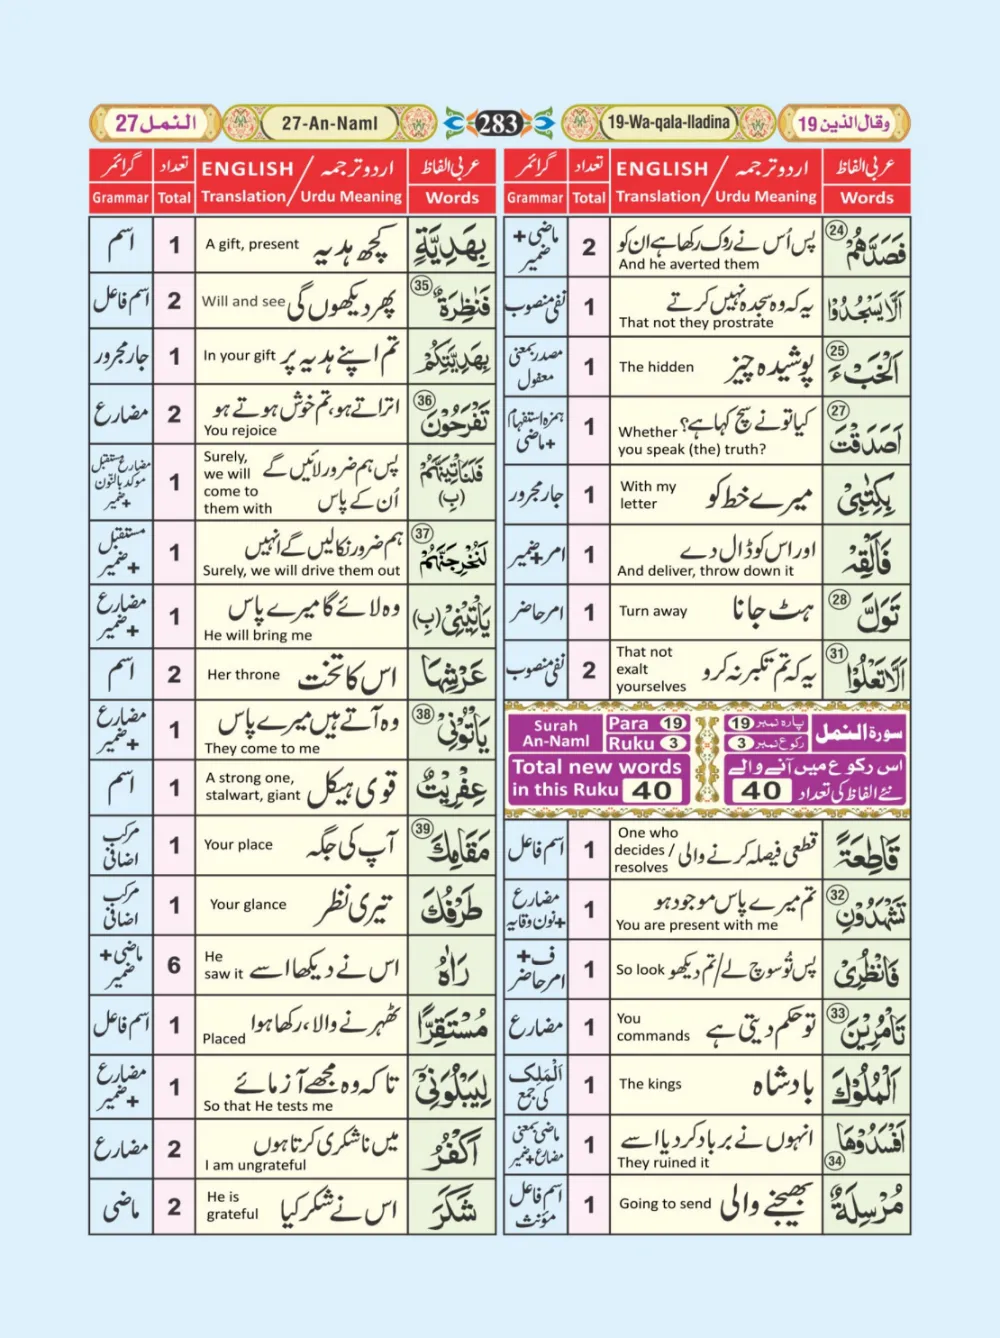 وقال الذين 19
19-Wa-qala-lladina
283
27-An-Naml
النمل 27
عربی الفاظ اردو ترجمہ / ENGLISH تعداد گرائمر
Words Urdu Meaning / Translation Total Grammar
24 فَصَدَّهُمْ پس اُس نے روک رکھا ہے ان کو And he averted them 2 ماضی + ضمیر
اَلَّا يَسْجُدُوْا یہ کہ وہ سجدہ نہیں کرتے That not they prostrate 1 نفی منصوب
25 الْخَبْءَ پوشیدہ چیز The hidden 1 مصدر بمعنی معفول
27 اَصَدَقْتَ کیا تو نے سچ کہا ہے؟ Whether you speak (the) truth? 1 ہمزہ استفہام + ماضی
بِكِتٰبِيْ میرے خط کو With my letter 1 جار مجرور
فَاَلْقِهْ اور اس کو ڈال دے And deliver, throw down it 1 امر + ضمیر
28 تَوَلَّ ہٹ جانا Turn away 1 امر حاضر
31 اَلَّا تَعْلُوْا یہ کہ تم تکبر نہ کرو That not exalt yourselves 2 نفی منصوب
Surah An-Naml Para 19 Ruku 3
Total new words in this Ruku 40
سورة النمل پارہ نمبر 19 رکوع نمبر 3
اس رکوع میں آنے والے نئے الفاظ کی تعداد 40
قَاطِعَةً قطعی فیصلہ کرنے والی One who decides / resolves 1 اسم فاعل
32 تَشْهَدُوْنِ تم میرے پاس موجود ہو You are present with me 1 مضارع + نون وقایہ
فَانْظُرِيْ پس تُو سوچ لے / تم دیکھو So look 1 ف + امر حاضر
33 تَاْمُرِيْنَ تو حکم دیتی ہے You commands 1 مضارع
الْمُلُوْكَ بادشاہ The kings 1 اَلْمَلِک کی جمع
34 اَفْسَدُوْهَا انہوں نے برباد کر دیا اسے They ruined it 1 ماضی بمعنی مضارع + ضمیر
مُرْسِلَةٌ بھیجنے والی Going to send 1 اسم فاعل مؤنث
عربی الفاظ اردو ترجمہ / ENGLISH تعداد گرائمر
Words Urdu Meaning / Translation Total Grammar
بِهَدِيَّةٍ کچھ ہدیہ A gift, present 1 اسم
35 فَنٰظِرَةٌ پھر دیکھوں گی Will and see 2 اسم فاعل
بِهَدِيَّتِكُمْ تم اپنے ہدیہ پر In your gift 1 جار مجرور
36 تَفْرَحُوْنَ اتراتے ہو، تم خوش ہوتے ہو You rejoice 2 مضارع
فَلَنَاْتِيَنَّهُمْ (بِ) پس ہم ضرور لائیں گے اُن کے پاس Surely, we will come to them with 1 مضارع مستقبل موکد بالنون + ضمیر
37 لَنُخْرِجَنَّهُمْ ہم ضرور نکالیں گے انہیں Surely, we will drive them out 1 مستقبل + ضمیر
يَاْتِيْنِيْ (بِ) وہ لائے گا میرے پاس He will bring me 1 مضارع + ضمیر
عَرْشِهَا اس کا تخت Her throne 2 اسم
38 يَاْتُوْنِيْ وہ آتے ہیں میرے پاس They come to me 1 مضارع + ضمیر
عِفْرِيْتٌ قوی ہیکل A strong one, stalwart, giant 1 اسم
39 مَقَامِكَ آپ کی جگہ Your place 1 مرکب اضافی
طَرْفُكَ تیری نظر Your glance 1 مرکب اضافی
رَاٰهُ اس نے دیکھا اسے He saw it 6 ماضی + ضمیر
مُسْتَقِرًّا ٹھہرنے والا، رکھا ہوا Placed 1 اسم فاعل
لِيَبْلُوَنِيْٓ تا کہ وہ مجھے آزمائے So that He tests me 1 مضارع + ضمیر
اَكْفُرُ میں ناشکری کرتا ہوں I am ungrateful 2 مضارع
شَكَرَ اس نے شکر کیا He is grateful 2 ماضی